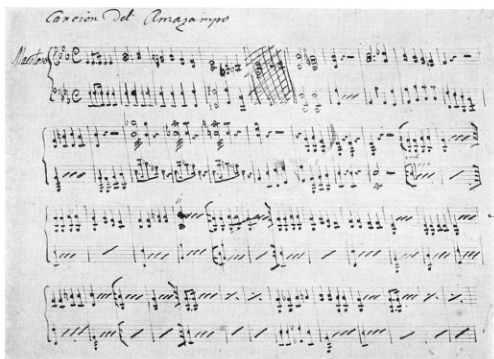 Cancion del Amazampo
Maestoso